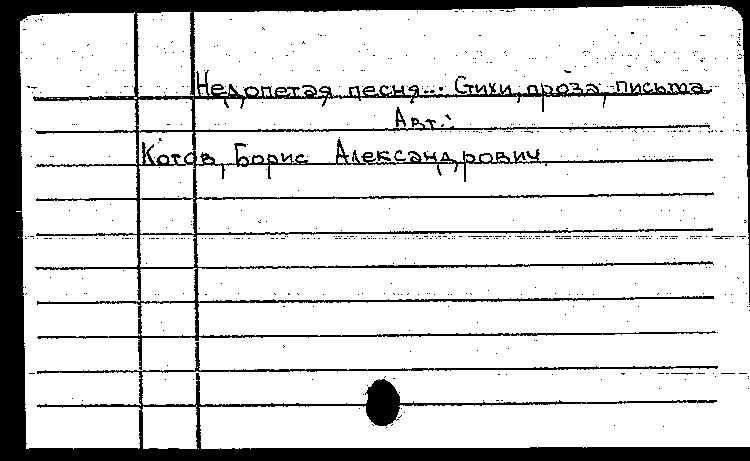 Недопетая песня... Стихи, проза, письма.
Авт.:
Котов, Борис Александрович.